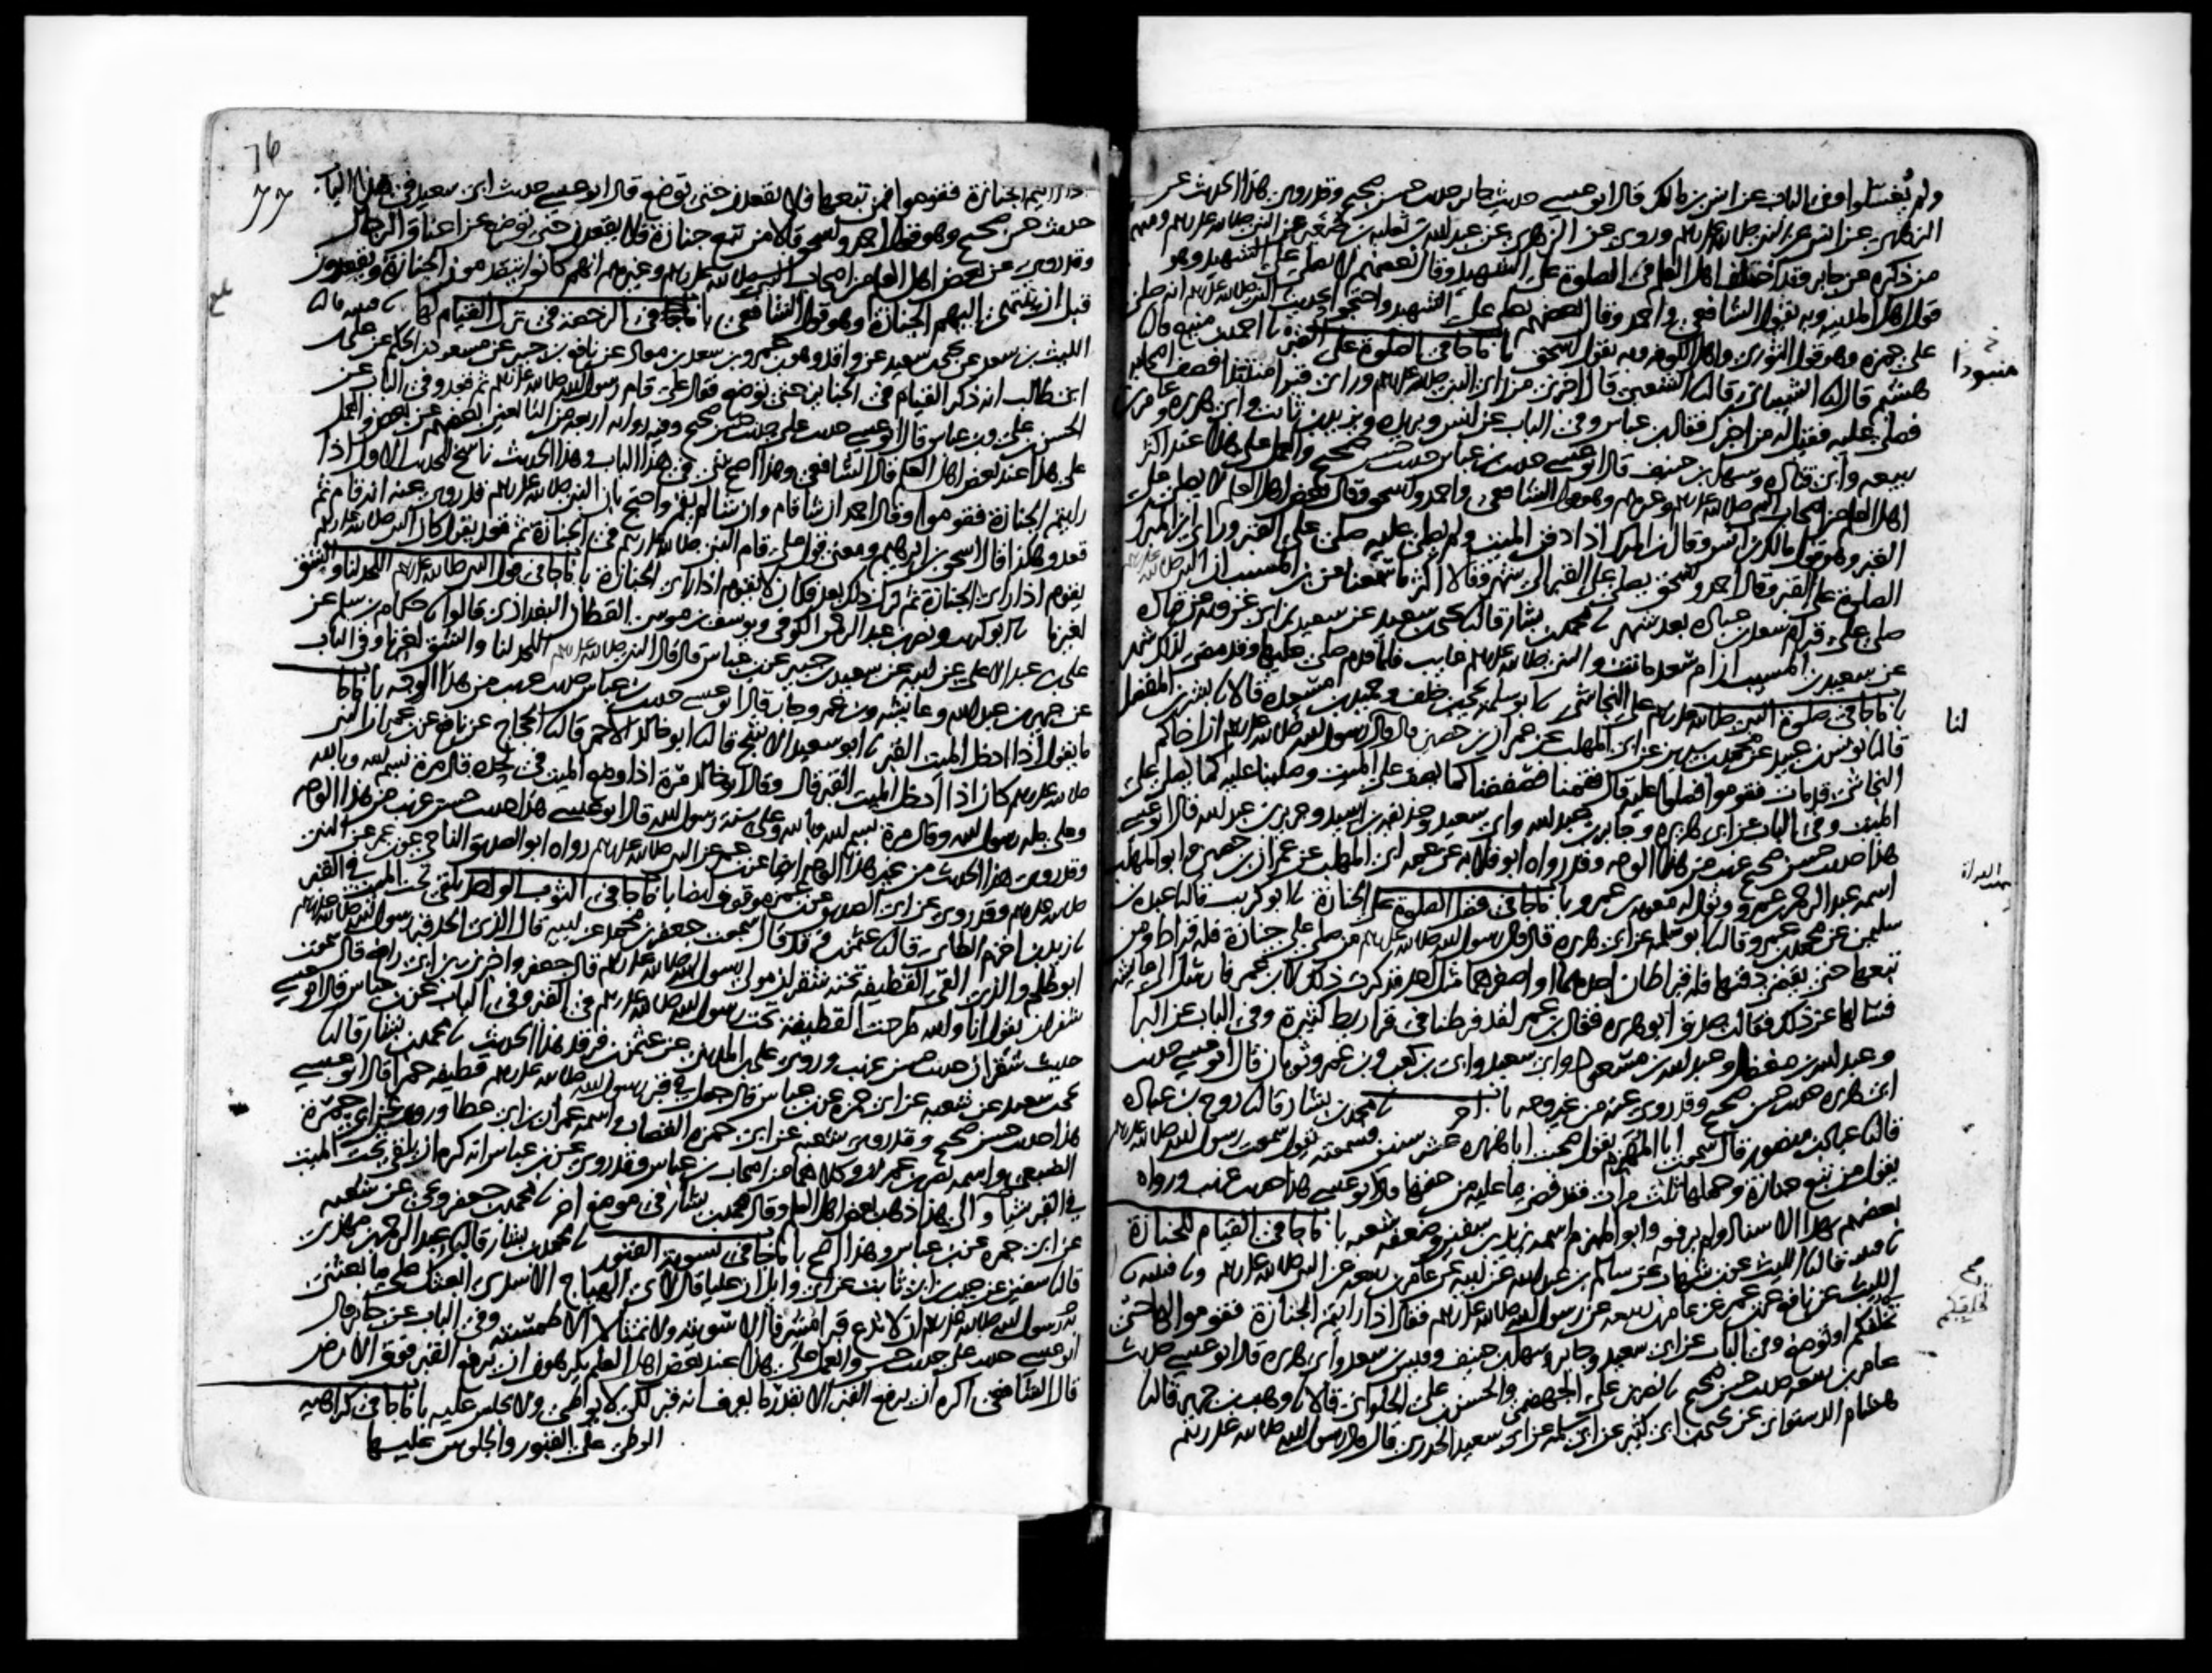 ولم يُغسّلوا وفي الباب عن انس بن مالك قال ابو عيسى حديث جابر حديث حسن صحيح وقد روي هذا الحديث عن
الزهري عن انس عن النبي صلى الله عليه وسلم وروي عن الزهري عن عبد الله بن ثعلبة بن عن النبي صلى الله عليه وسلم ومنهم
من ذكره عن جابر وقد اختلف اهل العلم في الصلوة على الشهيد وقال بعضهم لا يصلى على الشهيد وهو
قول اهل المدينة وبه يقول الشافعي واحمد وقال بعضهم يصلى على الشهيد واحتجوا بحديث النبي صلى الله عليه وسلم انه صلى
على حمزة وهو قول الثوري واهل الكوفة وبه يقول اسحق باب ما جا في الصلوة على القبر نا احمد بن منيع قال نا
هشيم قال نا الشيباني قال نا الشعبي قال اخبرني من راى النبي صلى الله عليه وسلم وراى قبرا منتبذا فصف اصحابه
فصلى عليه فقيل له من اخبرك فقال ابن عباس وفي الباب عن انس وبريدة ويزيد بن ثابت وابي هريرة وعامر بن
ربيعة وابي قتادة وسهل بن حنيف قال ابو عيسى حديث ابن عباس حديث حسن صحيح والعمل على هذا عند اكثر
اهل العلم من اصحاب النبي صلى الله عليه وسلم وغيرهم وهو قول الشافعي واحمد واسحق وقال بعض اهل العلم لا يصلى على
القبر وهو قول مالك بن انس وقال ابن المبارك اذا دفن الميت ولم يصل عليه صلي على القبر وراى ابن المبارك
الصلوة على القبر وقال احمد واسحق يصلى على القبر الى شهر وقالا اكثر ما سمعنا عن ابن المسيب ان النبي صلى الله عليه وسلم
صلى على قبر ام سعد بن عبادة بعد شهر نا محمد بن بشار قال نا يحيى بن سعيد عن سعيد بن ابي عروبة عن قتادة
عن سعيد بن المسيب ان ام سعد ماتت والنبي صلى الله عليه وسلم غايب فلما قدم صلى عليها وقد مضى لذلك شهر
باب ما جا في صلوة النبي صلى الله عليه وسلم على النجاشي نا ابو سلمة يحيى بن خلف وحميد بن مسعدة قالا نا بشر بن المفضل
قال نا يونس بن عبيد عن محمد بن سيرين عن ابي المهلب عن عمران بن حصين قال قال رسول الله صلى الله عليه وسلم ان اخاكم
النجاشي قد مات فقوموا فصلوا عليه قال فقمنا فصففنا كما يصف على الميت وصلينا عليه كما يصلى على
الميت وفي الباب عن ابي هريرة وجابر بن عبد الله وابي سعيد وحذيفة بن اسيد وجرير بن عبد الله قال ابو عيسى
هذا حديث حسن صحيح غريب من هذا الوجه وقد رواه ابو قلابة عن عمه ابي المهلب عن عمران بن حصين وابو المهلب
اسمه عبد الرحمن بن عمرو ويقال له معوية بن عمرو باب ما جا في فضل الصلوة على الجنازة نا ابو كريب قال نا عبدة بن
سليمن عن محمد بن عمرو قال نا ابو سلمة عن ابي هريرة قال قال رسول الله صلى الله عليه وسلم من صلى على جنازة فله قيراط ومن
تبعها حتى يقضى دفنها فله قيراطان احدهما او اصغرهما مثل احد فذكرت ذلك لابن عمر فارسل الى عايشة
فسالها عن ذلك فقالت صدق ابو هريرة فقال ابن عمر لقد فرطنا في قراريط كثيرة وفي الباب عن البرا
وعبد الله بن مغفل وعبد الله بن مسعود وابي سعيد وابي بن كعب وبن عمر وثوبان قال ابو عيسى حديث
ابي هريرة حديث حسن صحيح وقد روي عنه من غير وجه باب اخر نا محمد بن بشار قال نا روح بن عبادة
قال نا عباد بن منصور قال سمعت ابا المهزم يقول صحبت ابا هريرة عشر سنين فسمعته يقول سمعت رسول الله صلى الله عليه وسلم
يقول من تبع جنازة وحملها ثلث مرات فقد قضى ما عليه من حقها قال ابو عيسى هذا حديث غريب ورواه
بعضهم بهذا الاسناد ولم يرفعه وابو المهزم اسمه يزيد بن سفين وضعفه شعبة باب ما جا في القيام للجنازة
نا قتيبة قال نا الليث عن ابن شهاب عن سالم بن عبد الله عن ابيه عن عامر بن ربيعة عن النبي صلى الله عليه وسلم ونا قتيبة نا
الليث عن نافع عن ابن عمر عن عامر بن ربيعة عن رسول الله صلى الله عليه وسلم فقال اذا رايتم الجنازة فقوموا لها حتى
تخلفكم او توضع وفي الباب عن ابي سعيد وجابر وسهل بن حنيف وقيس بن سعد وابي هريرة قال ابو عيسى حديث
عامر بن ربيعة حديث حسن صحيح نا نصر بن علي الجهضمي والحسن بن علي الحلواني قالا نا وهب بن جرير قال نا
هشام الدستوائي عن يحيى بن ابي كثير عن ابي سلمة عن ابي سعيد الخدري قال قال رسول الله صلى الله عليه وسلم
منبوذا
لنا
76
77
اذا رايتم الجنازة فقوموا فمن تبعها فلا يقعدن حتى توضع قال ابو عيسى حديث ابي سعيد في هذا الباب
حديث حسن صحيح وهو قول احمد واسحق قالا من تبع جنازة فلا يقعدن حتى توضع عن اعناق الرجال
وقد روي عن بعض اهل العلم من اصحاب النبي صلى الله عليه وسلم وغيرهم انهم كانوا يتقدمون الجنازة ويقعدون
قبل ان تنتهي اليهم الجنازة وهو قول الشافعي باب ما جا في الرخصة في ترك القيام لها نا قتيبة قال نا
الليث بن سعد عن يحيى بن سعيد عن واقد وهو ابن عمرو بن سعد بن معاذ عن نافع بن جبير عن مسعود بن الحكم عن علي بن
ابي طالب انه ذكر القيام في الجنايز حتى توضع فقال علي قام رسول الله صلى الله عليه وسلم ثم قعد وفي الباب عن
الحسن بن علي وبن عباس قال ابو عيسى حديث علي حديث حسن صحيح وفيه رواية اربعة من التابعين بعضهم عن بعض والعمل
على هذا عند بعض اهل العلم قال الشافعي وهذا اصح شي في هذا الباب وهذا الحديث ناسخ للحديث الاول اذا
رايتم الجنازة فقوموا وقال احمد ان شا قام وان شا لم يقم واحتج بان النبي صلى الله عليه وسلم قد روي عنه انه قام ثم
قعد وهكذا قال اسحق بن ابرهيم ومعنى قول علي قام النبي صلى الله عليه وسلم في الجنازة ثم قعد يقول كان النبي صلى الله عليه وسلم
يقوم اذا راى الجنازة ثم ترك ذلك بعد فكان لا يقوم اذا راى الجنازة باب ما جا في قول النبي صلى الله عليه وسلم اللحد لنا والشق
لغيرنا نا ابو كريب ونصر بن عبد الرحمن الكوفي ويوسف بن موسى القطان البغدادي قالوا نا حكام بن سلم عن
علي بن عبد الاعلى عن ابيه عن سعيد بن جبير عن ابن عباس قال قال النبي صلى الله عليه وسلم اللحد لنا والشق لغيرنا وفي الباب
عن جرير بن عبد الله وعايشة وبن عمر وجابر قال ابو عيسى حديث ابن عباس حديث غريب من هذا الوجه باب ما جا
ما يقول اذا ادخل الميت القبر نا ابو سعيد الاشج قال نا ابو خالد الاحمر قال نا الحجاج عن نافع عن ابن عمر ان النبي
صلى الله عليه وسلم كان اذا ادخل الميت القبر قال وقال ابو خالد مرة اذا وضع الميت في لحده قال مرة بسم الله وبالله
وعلى ملة رسول الله وقال مرة بسم الله وبالله وعلى سنة رسول الله قال ابو عيسى هذا حديث حسن غريب من هذا الوجه
وقد روي هذا الحديث من غير هذا الوجه ايضا عن ابن عمر عن النبي صلى الله عليه وسلم رواه ابو الصديق الناجي عن ابن عمر عن النبي
صلى الله عليه وسلم وقد روي عن ابي الصديق عن ابن عمر موقوف ايضا باب ما جا في الثوب الواحد يلقى تحت الميت في القبر
نا زيد بن اخزم الطائي قال نا عثمن بن فرقد قال سمعت جعفر بن محمد عن ابيه قال الذي الحد قبر رسول الله صلى الله عليه وسلم
ابو طلحة والذي القى القطيفة تحته شقران مولى رسول الله صلى الله عليه وسلم قال جعفر واخبرني ابن ابي رافع قال سمعت
شقران يقول انا والله طرحت القطيفة تحت رسول الله صلى الله عليه وسلم في القبر وفي الباب عن ابن عباس قال ابو عيسى
حديث شقران حديث حسن غريب وروى علي بن المديني عن عثمن بن فرقد هذا الحديث نا محمد بن بشار قال نا
يحيى بن سعيد عن شعبة عن ابي حمزة عن ابن عباس قال جعل في قبر رسول الله صلى الله عليه وسلم قطيفة حمرا قال ابو عيسى
هذا حديث حسن صحيح وقد روى شعبة عن ابي حمزة القصاب اسمه عمران بن ابي عطا وروي عن ابي جمرة
الضبعي واسمه نصر بن عمران وكلاهما من اصحاب ابن عباس وقد روي عن ابن عباس انه كره ان يلقى تحت الميت
في القبر شيا والى هذا ذهب بعض اهل العلم وقال محمد بن بشار في موضع اخر نا محمد بن جعفر ويحيى عن شعبة
عن ابي جمرة عن ابن عباس وهذا اصح باب ما جا في تسوية القبور نا محمد بن بشار قال نا عبد الرحمن بن مهدي
قال نا سفين عن حبيب بن ابي ثابت عن ابي وايل ان عليا قال لابي الهياج الاسدي ابعثك على ما بعثني
به رسول الله صلى الله عليه وسلم ان لا تدع قبرا مشرفا الا سويته ولا تمثالا الا طمسته وفي الباب عن جابر قال
ابو عيسى حديث علي حديث حسن والعمل على هذا عند بعض اهل العلم يكرهون ان يرفع القبر فوق الارض
قال الشافعي اكره ان يرفع القبر الا بقدر ما يعرف انه قبر لكي لا يوطى ولا يجلس عليه باب ما جا في كراهية
الوطي على القبور والجلوس عليها